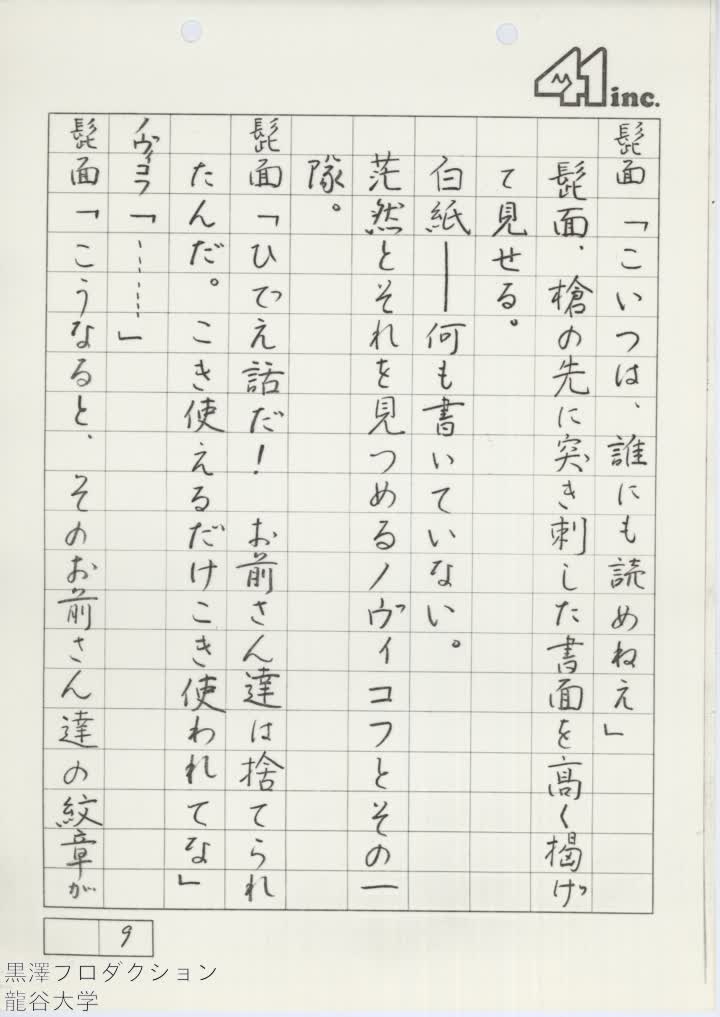 41 inc.
髭面「こいつは、誰にも読めねえ」
髭面、槍の先に突き刺した書面を高く掲げ
て見せる。
白紙――何も書いていない。
茫然とそれを見つめるノヴィコフとその一
隊。
髭面「ひでえ話だ！　お前さん達は捨てられ
たんだ。こき使えるだけこき使われてな」
ノヴィコフ「………」
髭面「こうなると、そのお前さん達の紋章が
9
黒澤プロダクション
龍谷大学